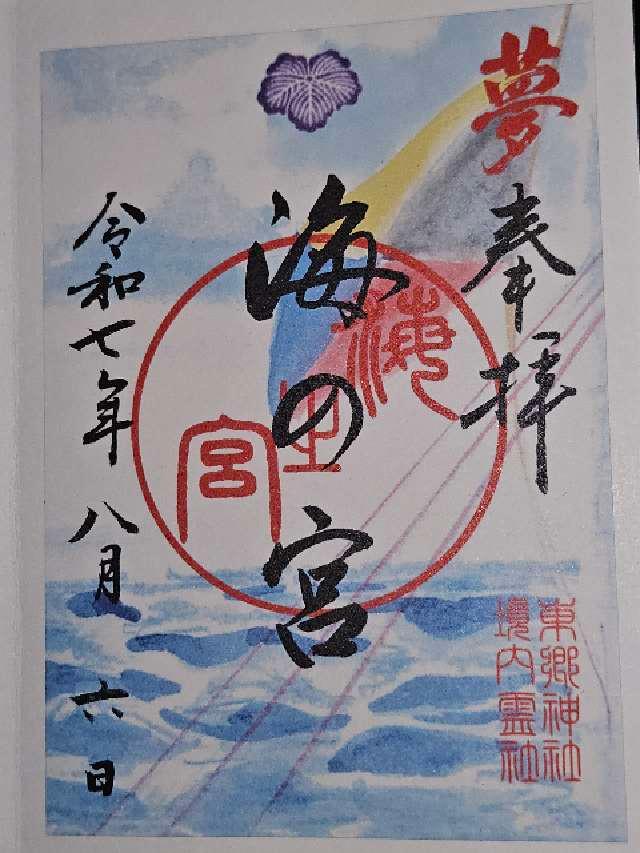 夢
奉拝
海の宮
海之宮
令和七年 八月 六日
東郷神社
境内霊社